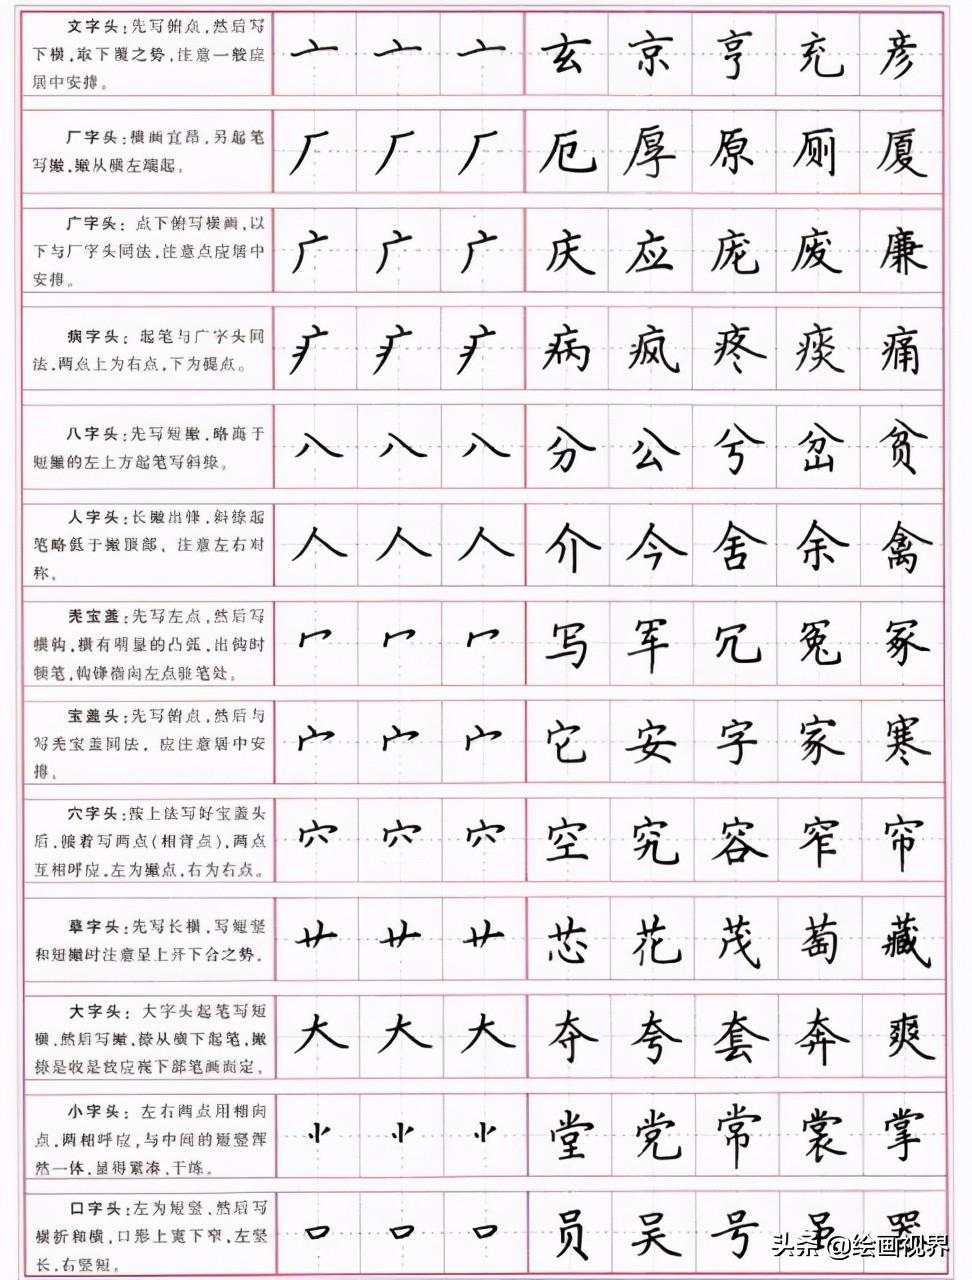 文字头：先写俯点，然后写
下横，取下覆之势，注意一般应
居中安排。
亠 亠 亠 玄 京 亨 充 彦
厂字头：横画宜昂，另起笔
写撇，撇从横左端起。
厂 厂 厂 厄 厚 原 厕 厦
广字头：点下俯写横画，以
下与厂字头同法，注意点应居中
安排。
广 广 广 庆 应 庞 废 廉
病字头：起笔与广字头同
法，两点上为右点，下为提点。
疒 疒 疒 病 疯 疼 痰 痛
八字头：先写短撇，略高于
短撇的左上方起笔写斜捺。
八 八 八 分 公 兮 岔 贫
人字头：长撇出锋，斜捺起
笔略低于撇顶部，注意左右对
称。
人 人 人 介 今 舍 余 禽
秃宝盖：先写左点，然后写
横钩，横有明显的凸弧，出钩时
顿笔，钩锋指向左点驻笔处。
冖 冖 冖 写 军 冗 冤 冢
宝盖头：先写俯点，然后与
写秃宝盖同法，应注意居中安
排。
宀 宀 宀 它 安 字 家 寒
穴字头：按上法写好宝盖头
后，接着写两点（相背点），两点
互相呼应，左为撇点，右为右点。
穴 穴 穴 空 究 容 窄 帘
草字头：先写长横，写短竖
和短撇时注意呈上开下合之势。
艹 艹 艹 芯 花 茂 萄 藏
大字头：大字头起笔写短
横，然后写撇，捺从横下起笔，撇
捺是收是放应视下部笔画而定。
大 大 大 夺 夸 套 奔 爽
小字头：左右两点用相向
点，两相呼应，与中间的短竖浑
然一体，显得紧凑、干练。
⺌ ⺌ ⺌ 堂 党 常 裳 掌
口字头：左为短竖，然后写
横折和横，口形上宽下窄，左竖
长，右竖短。
口 口 口 员 吴 号 虽 哭
头条 @绘画视界